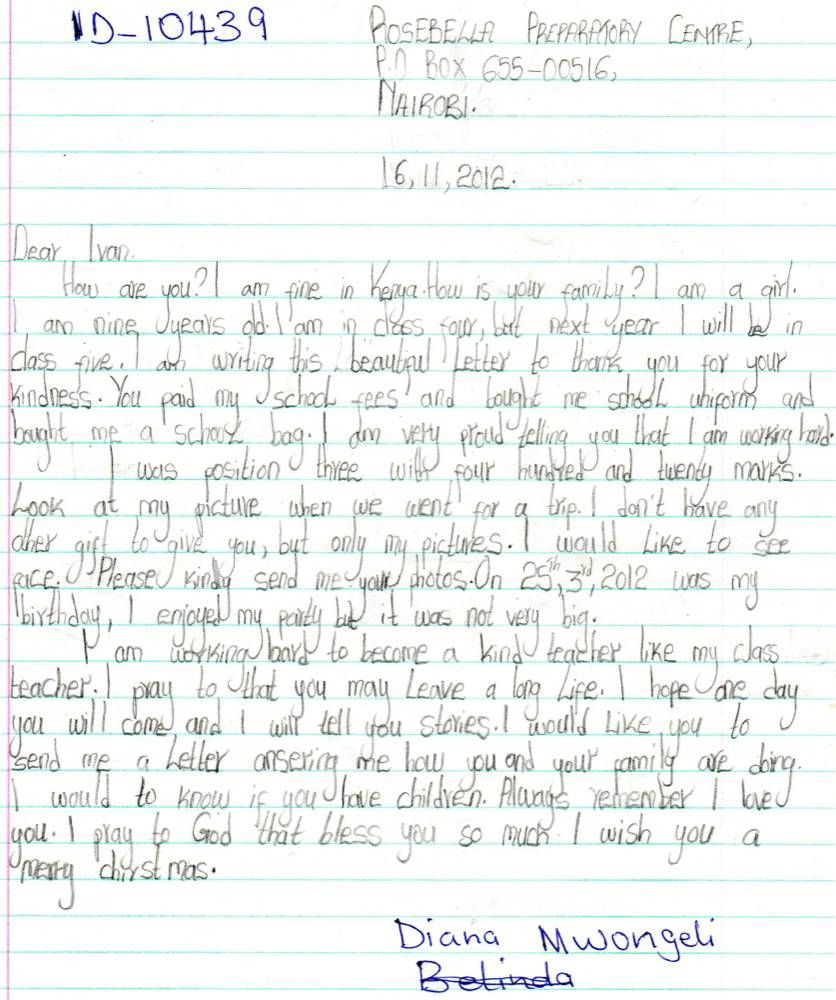 ID-10439
ROSEBELLA PREPARATORY CENTRE,
P.O BOX 655-00516,
NAIROBI.
16,11,2012.
Dear Ivan.
How are you? I am fine in Kenya. How is your family? I am a girl.
I am nine years old. I am in class four, but next year I will be in
class five. I am writing this beautiful Letter to thank you for your
kindness. You paid my school fees and bought me school uniform and
bought me a school bag. I am very proud telling you that I am working hard.
I was position three with four hundred and twenty marks.
Look at my picture when we went for a trip. I don't have any
other gift to give you, but only my pictures. I would Like to see
face. Please kindly send me your photos. On 25th, 3rd, 2012 was my
birthday, I enjoyed my party but it was not very big.
I am working hard to become a kind teacher like my class
teacher. I pray to that you may Leave a long Life. I hope one day
you will come and I will tell you stories. I would Like you to
send me a Letter ansering me how you and your family are doing.
I would to know if you have children. Always remember I love
you. I pray to God that bless you so much I wish you a
merry chirstmas.
Diana Mwongeli
Belinda